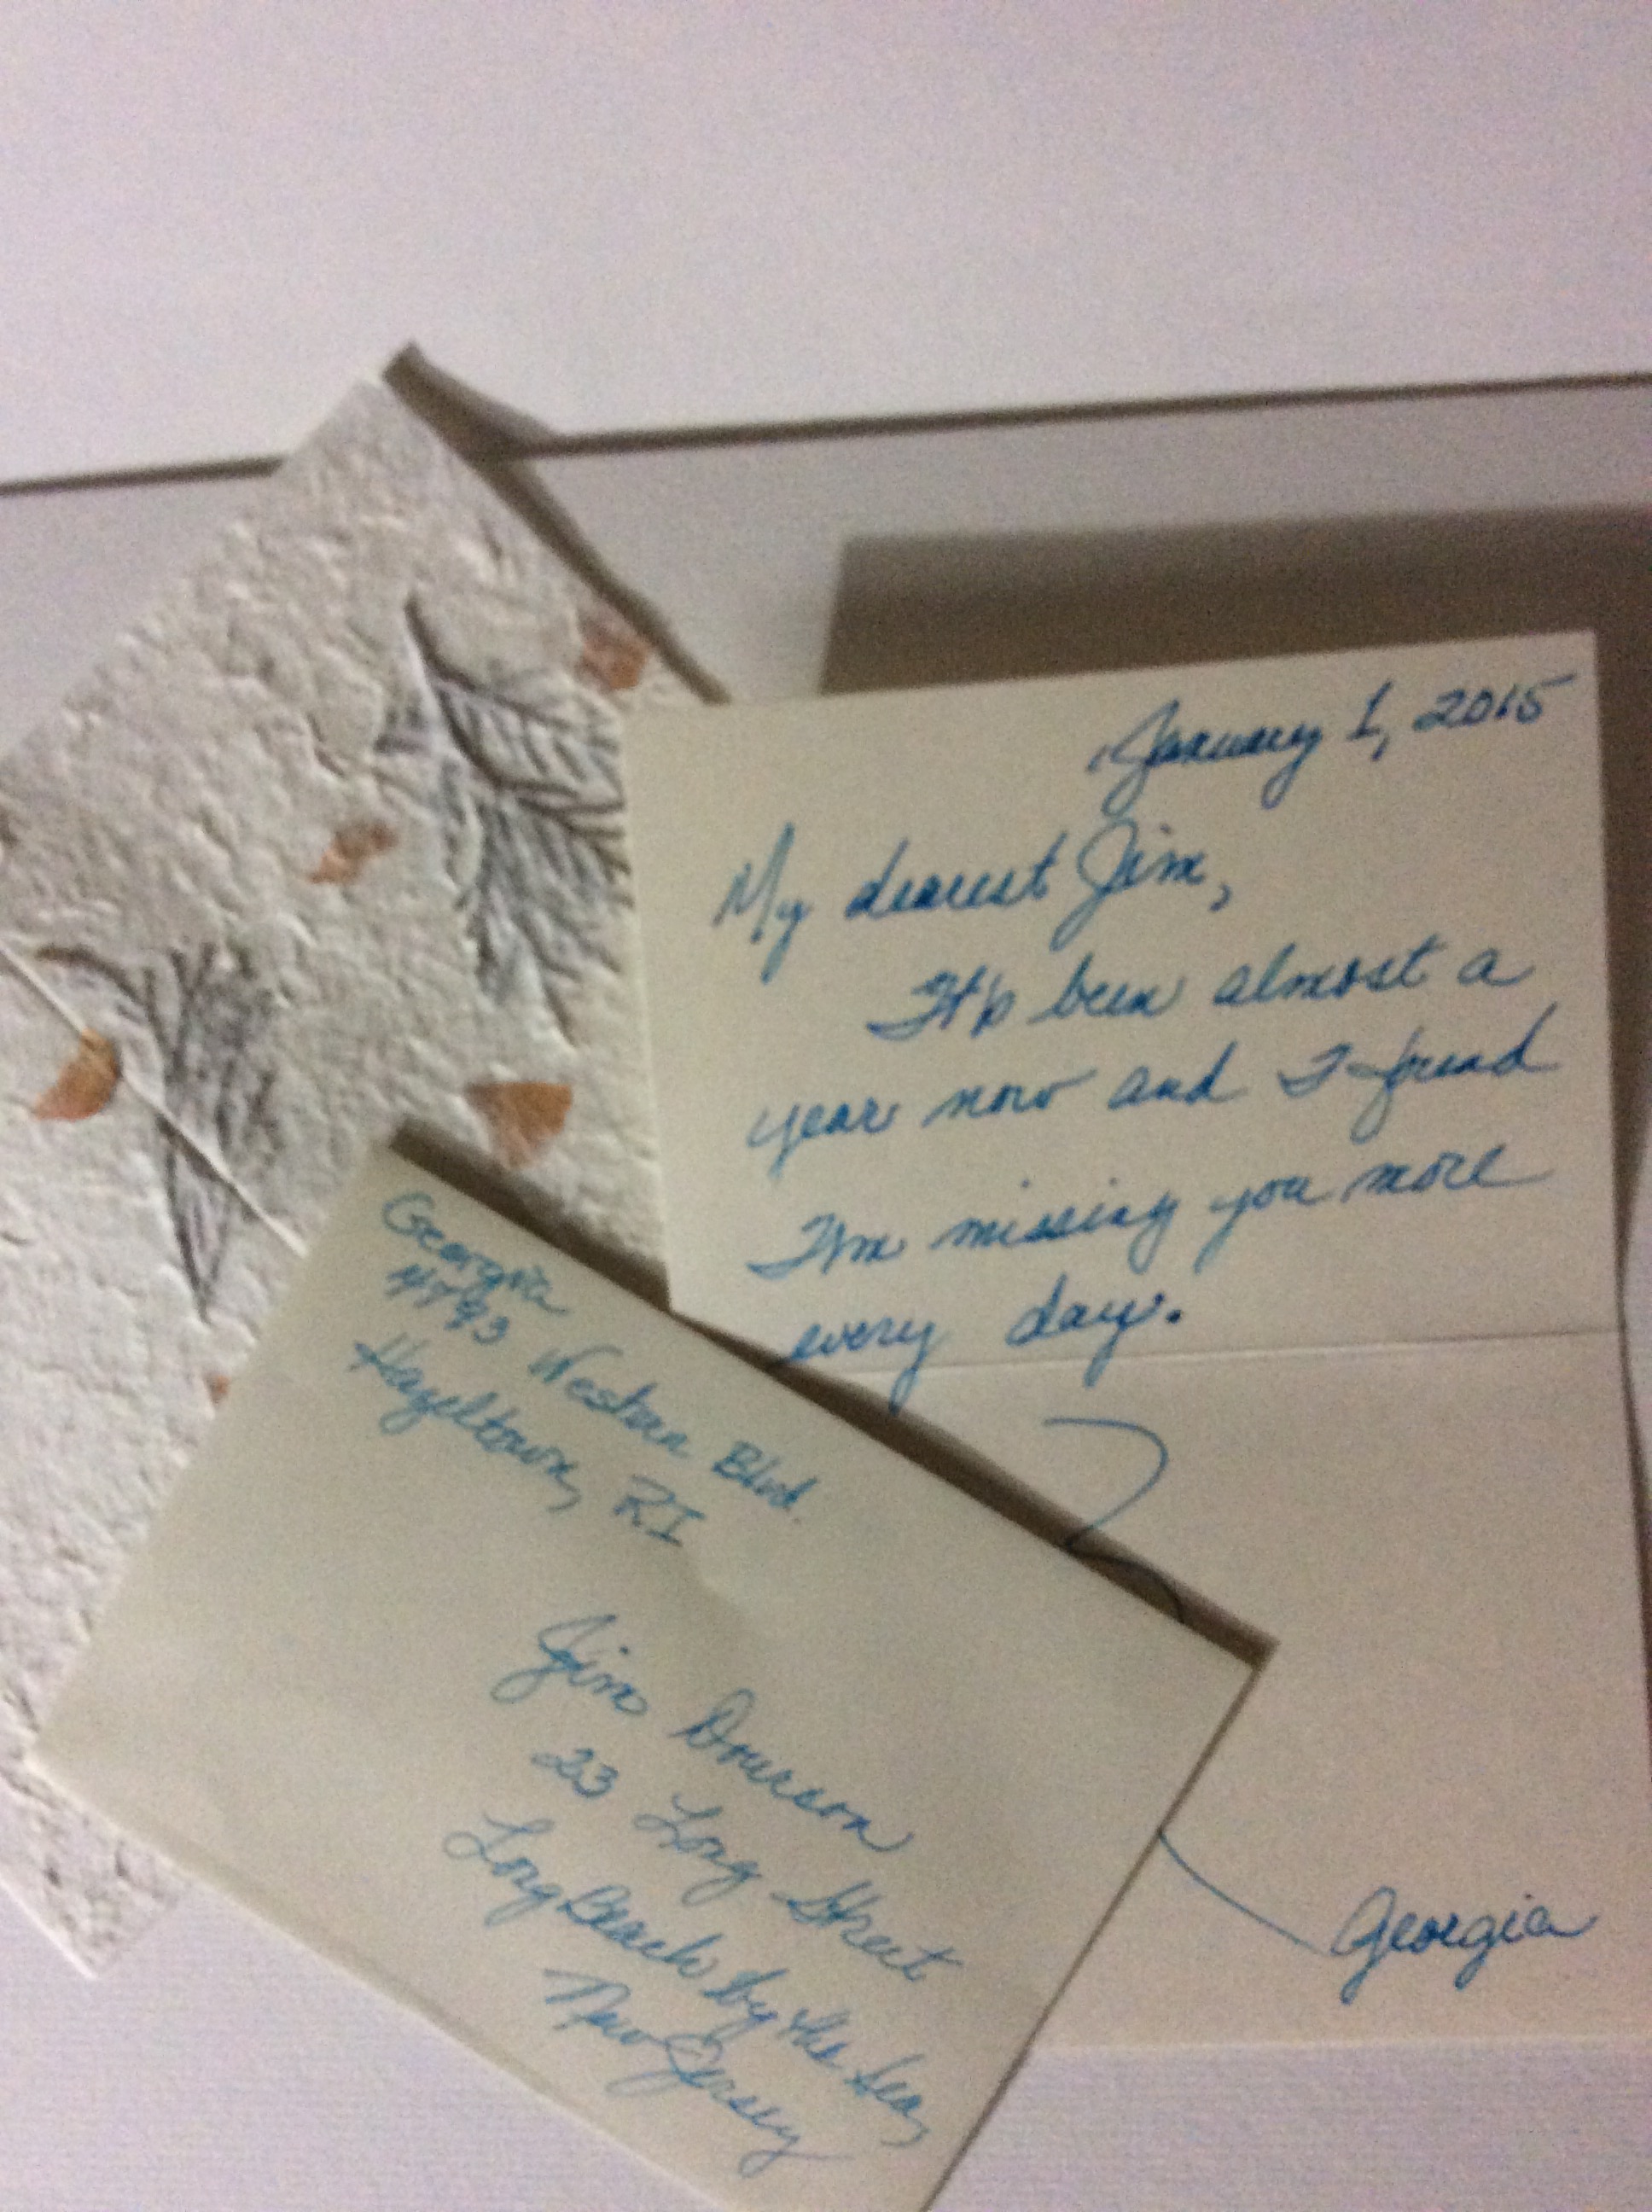 January 1, 2015
My dearest Jim,
It's been almost a
year now and I found
I'm missing you more
every day.
Georgia
Georgia
4793 Western Blvd.
Hazeltown, RI
Jim
23 Long Street
Long Beach by the Sea,
New Jersey